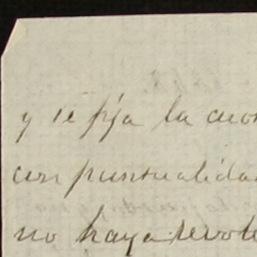 y se fija la cuo
con puntualida
no haya revol